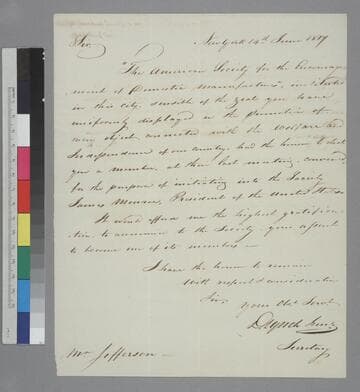 New York 14th June 1817
Sir,
"The American Society for the Encourage
ment of Domestic Manufactures", instituted
in this city, sensible of the zeal you have
uniformly displayed in the promotion of
every object connected with the welfare and
Independence of our country, had the honor to elect
you a member, at their last meeting, convened
for the purpose of initiating into the Society
James Monroe, President of the United States
It would afford me the highest gratifica
tion to announce to the Society your assent
to become one of its members—
I have the honor to remain
with respect & consideration
Sir,
your Obt Servt
D Lynch Junr
Secretary
Mr Jefferson—